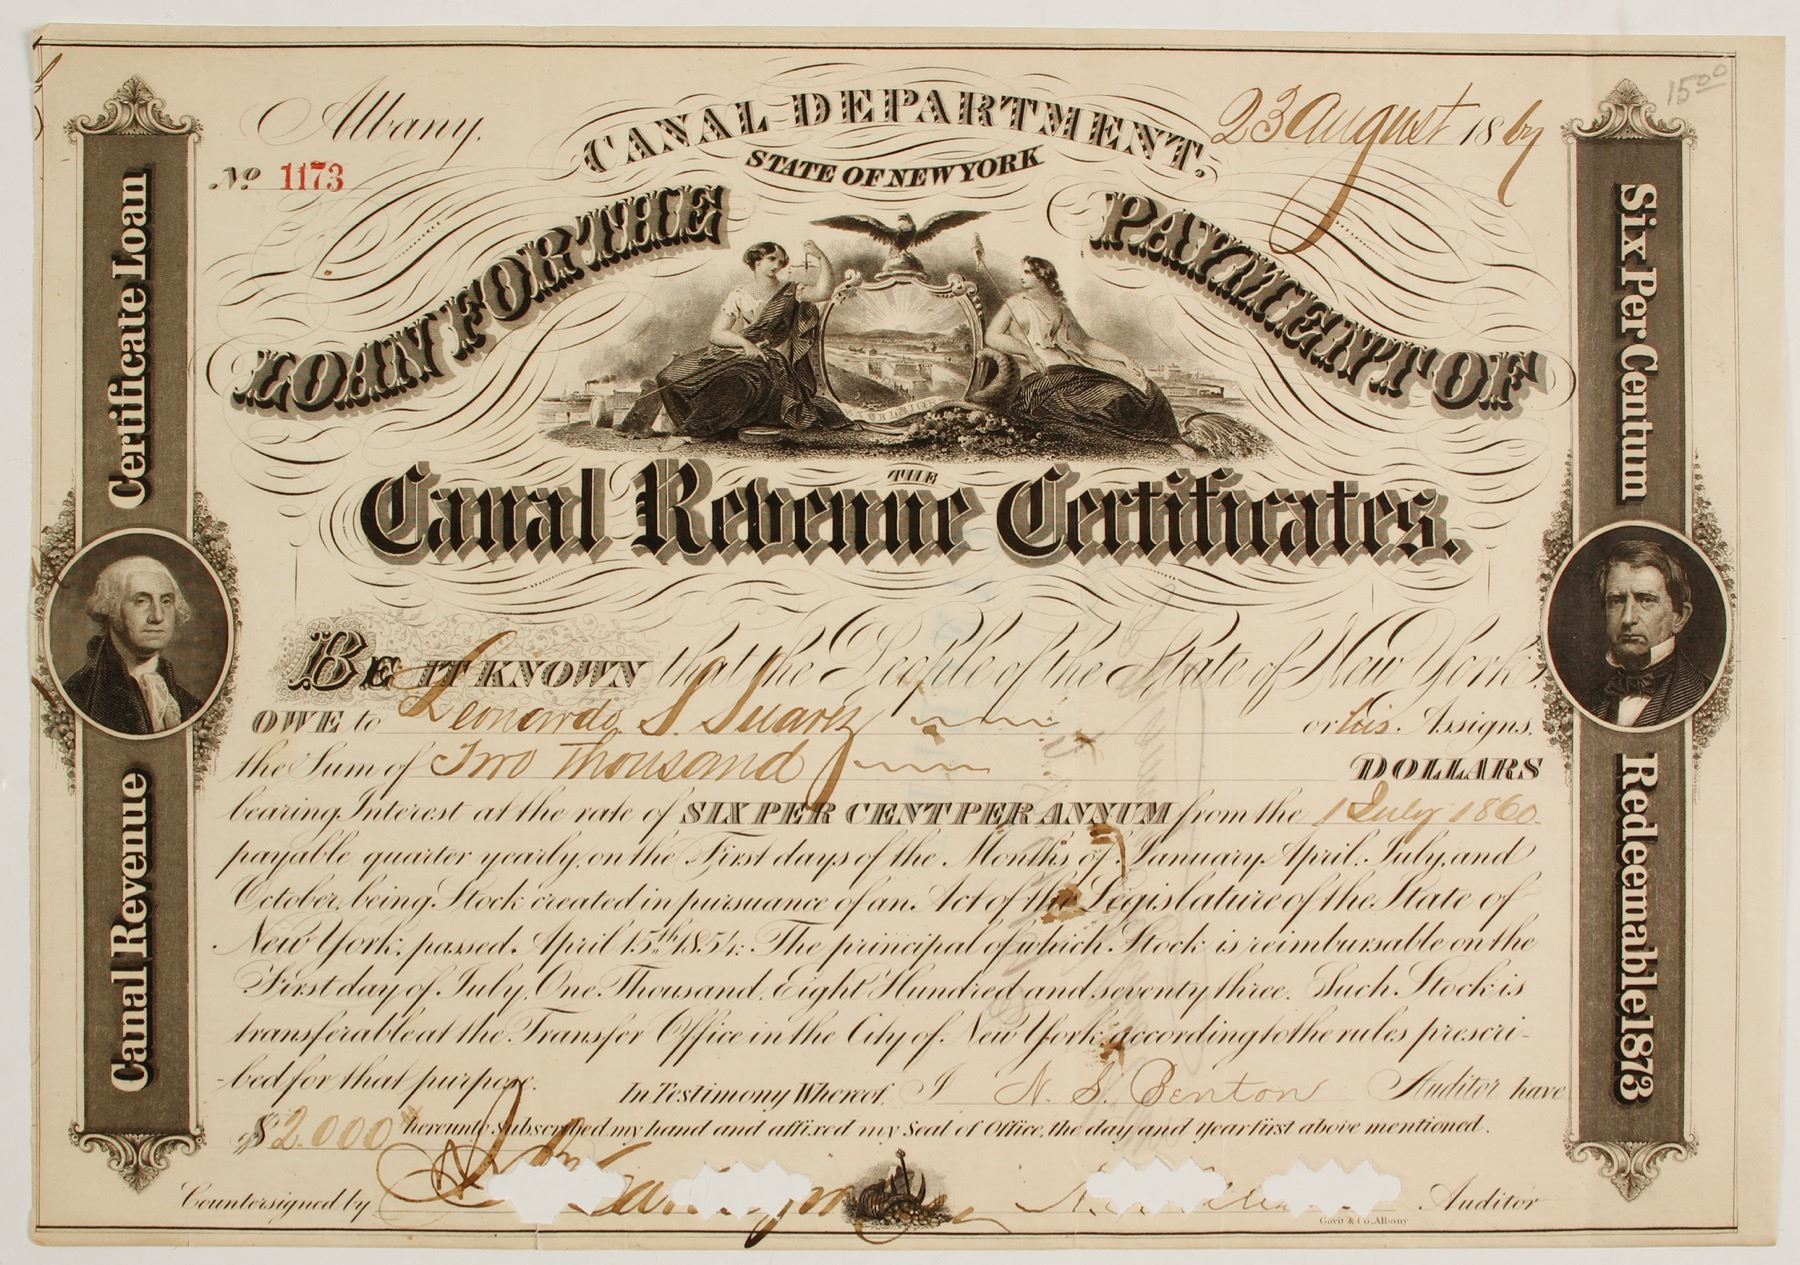 15 00
Albany, CANAL DEPARTMENT. 23 August 18
STATE OF NEW YORK
No 1173
LOAN FOR THE PAYMENT OF
THE
Canal Revenue Certificates.
BE IT KNOWN that the People of the State of New York,
OWE to Leonardo S. Suarez or his Assigns,
the Sum of Two Thousand DOLLARS
bearing Interest at the rate of SIX PER CENT PER ANNUM from the 1 July 1860
payable quarter yearly, on the First days of the Months of January, April, July, and
October, being Stock created in pursuance of an Act of the Legislature of the State of
New York, passed, April 15th 1854: The principal of which Stock is reimbursable on the
First day of July, One Thousand, Eight Hundred and seventy three. Such Stock is
transferable at the Transfer Office in the City of New York, according to the rules prescri-
-bed for that purpose. In Testimony Whereof, I N. S. Benton Auditor have
$2.000 hereunto subscribed my hand and affixed my Seal of Office, the day and year first above mentioned.
Countersigned by Auditor
Gavit & Co. Albany
Canal Revenue Certificate Loan
Six Per Centum Redeemable 1873